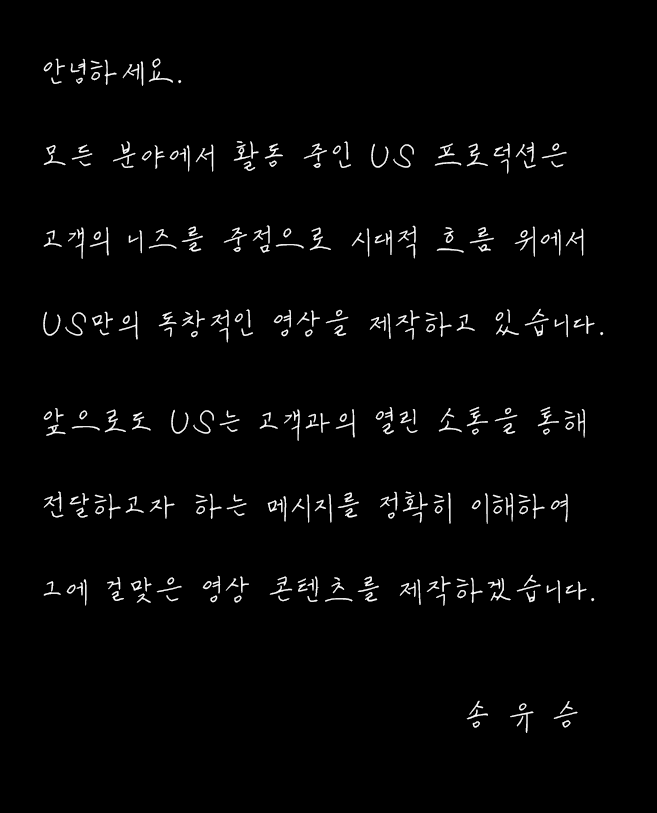 안녕하세요.
모든 분야에서 활동 중인 US 프로덕션은
고객의 니즈를 중점으로 시대적 흐름 위에서
US만의 독창적인 영상을 제작하고 있습니다.
앞으로도 US는 고객과의 열린 소통을 통해
전달하고자 하는 메시지를 정확히 이해하여
그에 걸맞은 영상 콘텐츠를 제작하겠습니다.
송 유 승